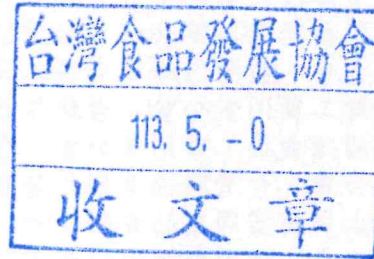 台灣食品發展協會
113. 5. -0
收文章